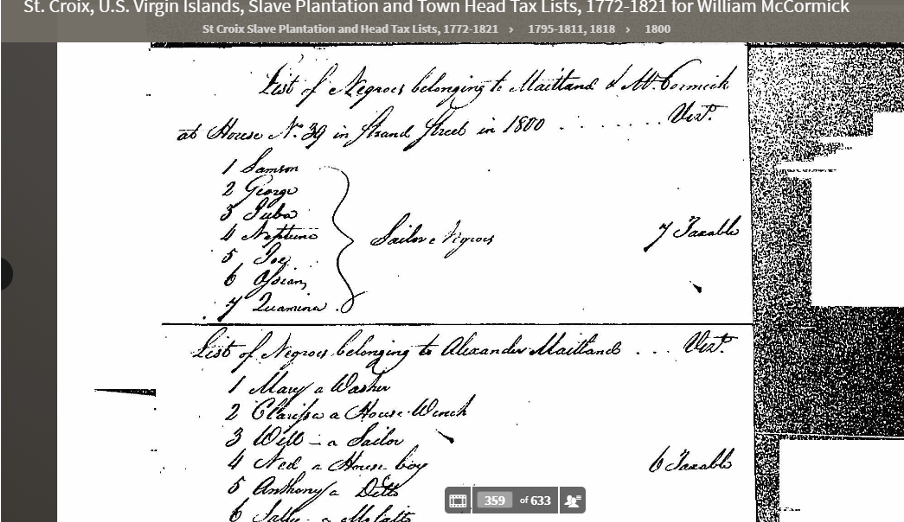 St. Croix, U.S. Virgin Islands, Slave Plantation and Town Head Tax Lists, 1772-1821 for William McCormick
St Croix Slave Plantation and Head Tax Lists, 1772-1821 › 1795-1811, 1818 › 1800
List of Negroes belonging to Maitland & McCormick
at House No. 39 in Strand Street in 1800 . . . . . . . Vizt.
1 Samson
2 George
3 Juba
4 Neptune
5 Joe
6
7 Quamina
Sailor Negroes
7 Taxable
List of Negroes belonging to Alexander Maitland . . . Vizt.
1 Mary a Washer
2 Clarissa a House Wench
3 Will - a Sailor
4 Ned a House boy
6 Taxable
5 Anthony a Ditto
6 Sally a
359 of 633